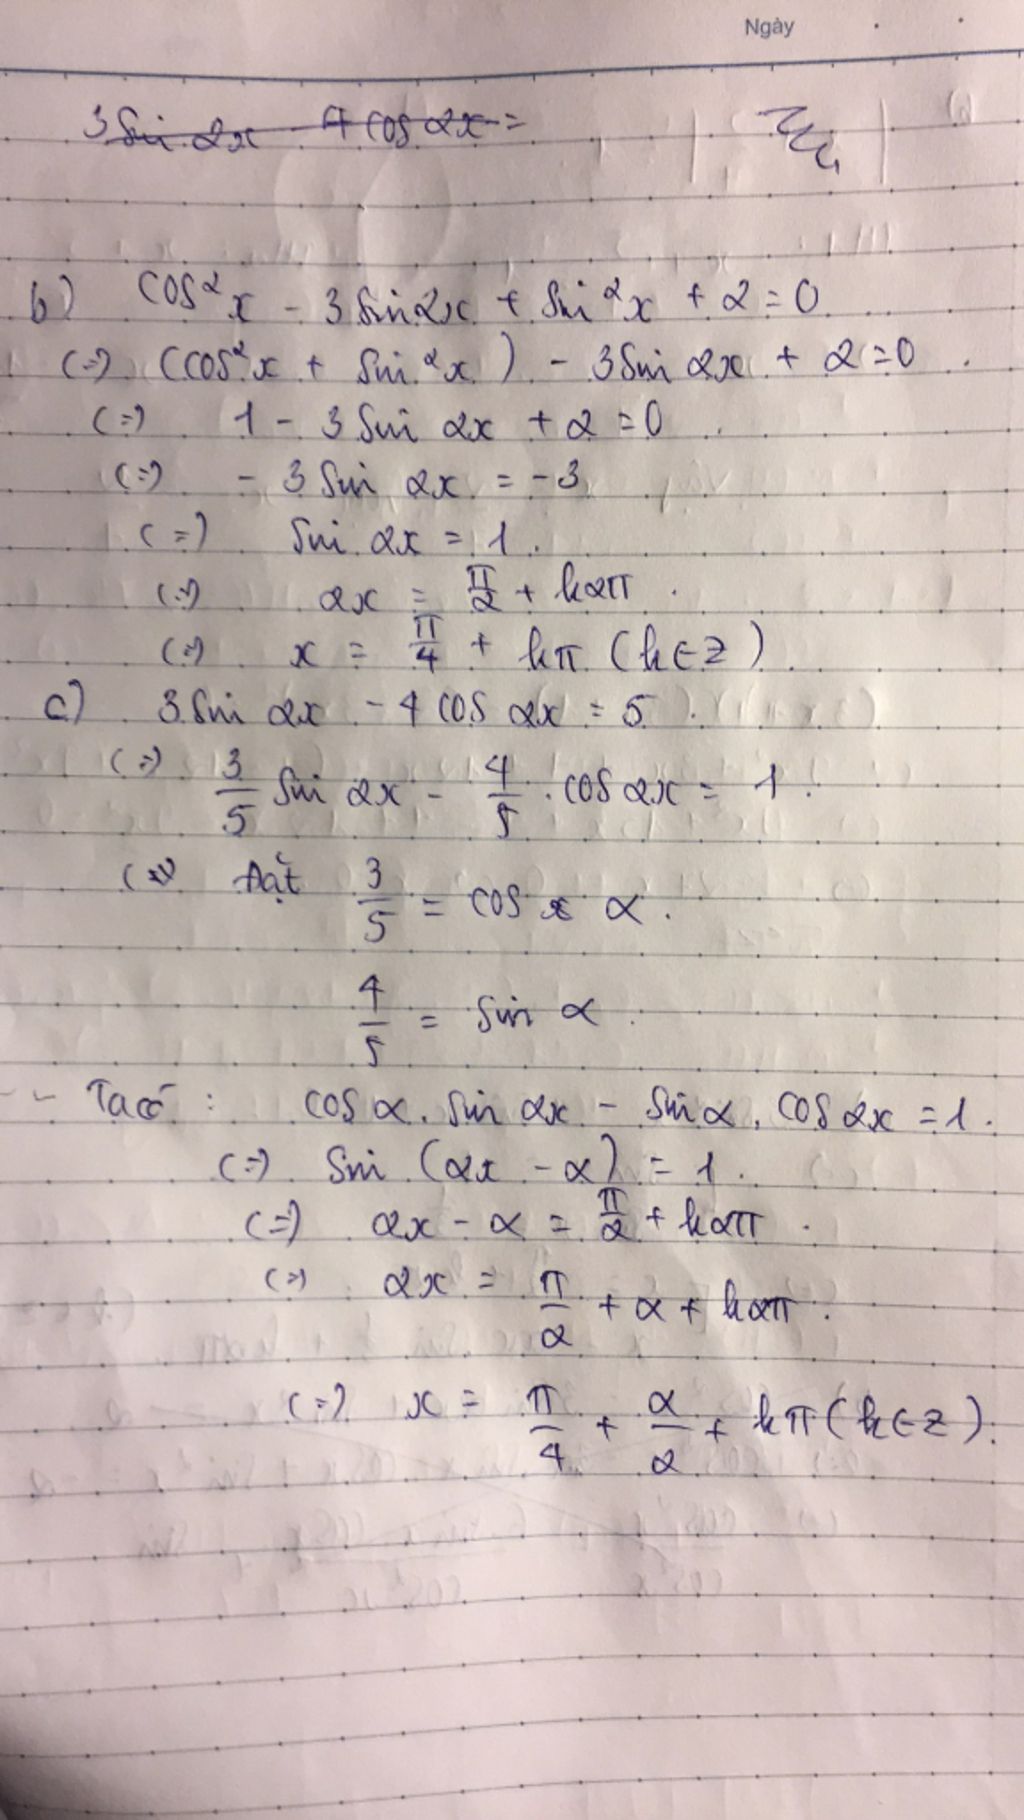 Ngày
3 sin 2x - 4 cos 2x =
b) cos²x - 3 sin 2x + sin²x + 2 = 0
(=) (cos²x + sin²x) - 3 sin 2x + 2 = 0
(=) 1 - 3 sin 2x + 2 = 0
(=) - 3 sin 2x = -3
(=) sin 2x = 1.
(=) 2x = π/2 + k2π.
(=) x = π/4 + kπ (k ∈ Z)
c) 3 sin 2x - 4 cos 2x = 5.
(=) 3/5 sin 2x - 4/5 . cos 2x = 1.
Đặt 3/5 = cos α.
4/5 = sin α.
- Ta có : cos α. sin 2x - sin α. cos 2x = 1.
(=) sin (2x - α) = 1.
(=) 2x - α = π/2 + k2π.
(=) 2x = π/2 + α + k2π.
(=) x = π/4 + α/2 + kπ (k ∈ Z).